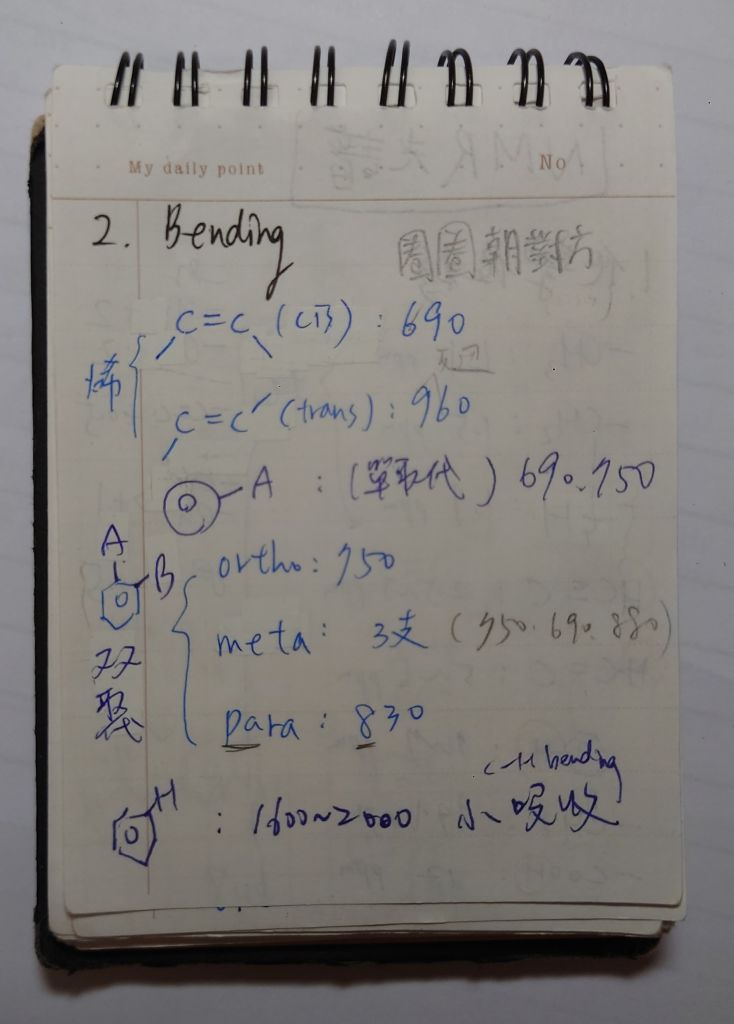 My daily point No
2. Bending
圈圈朝對方
C=C (cis) : 690
烯
C=C (trans) : 960
A : (單取代) 690、750
A
B
双取代
ortho : 750
meta : 3支 (750.690.880)
para : 830
C-H bending
H : 1600~2000 小吸收